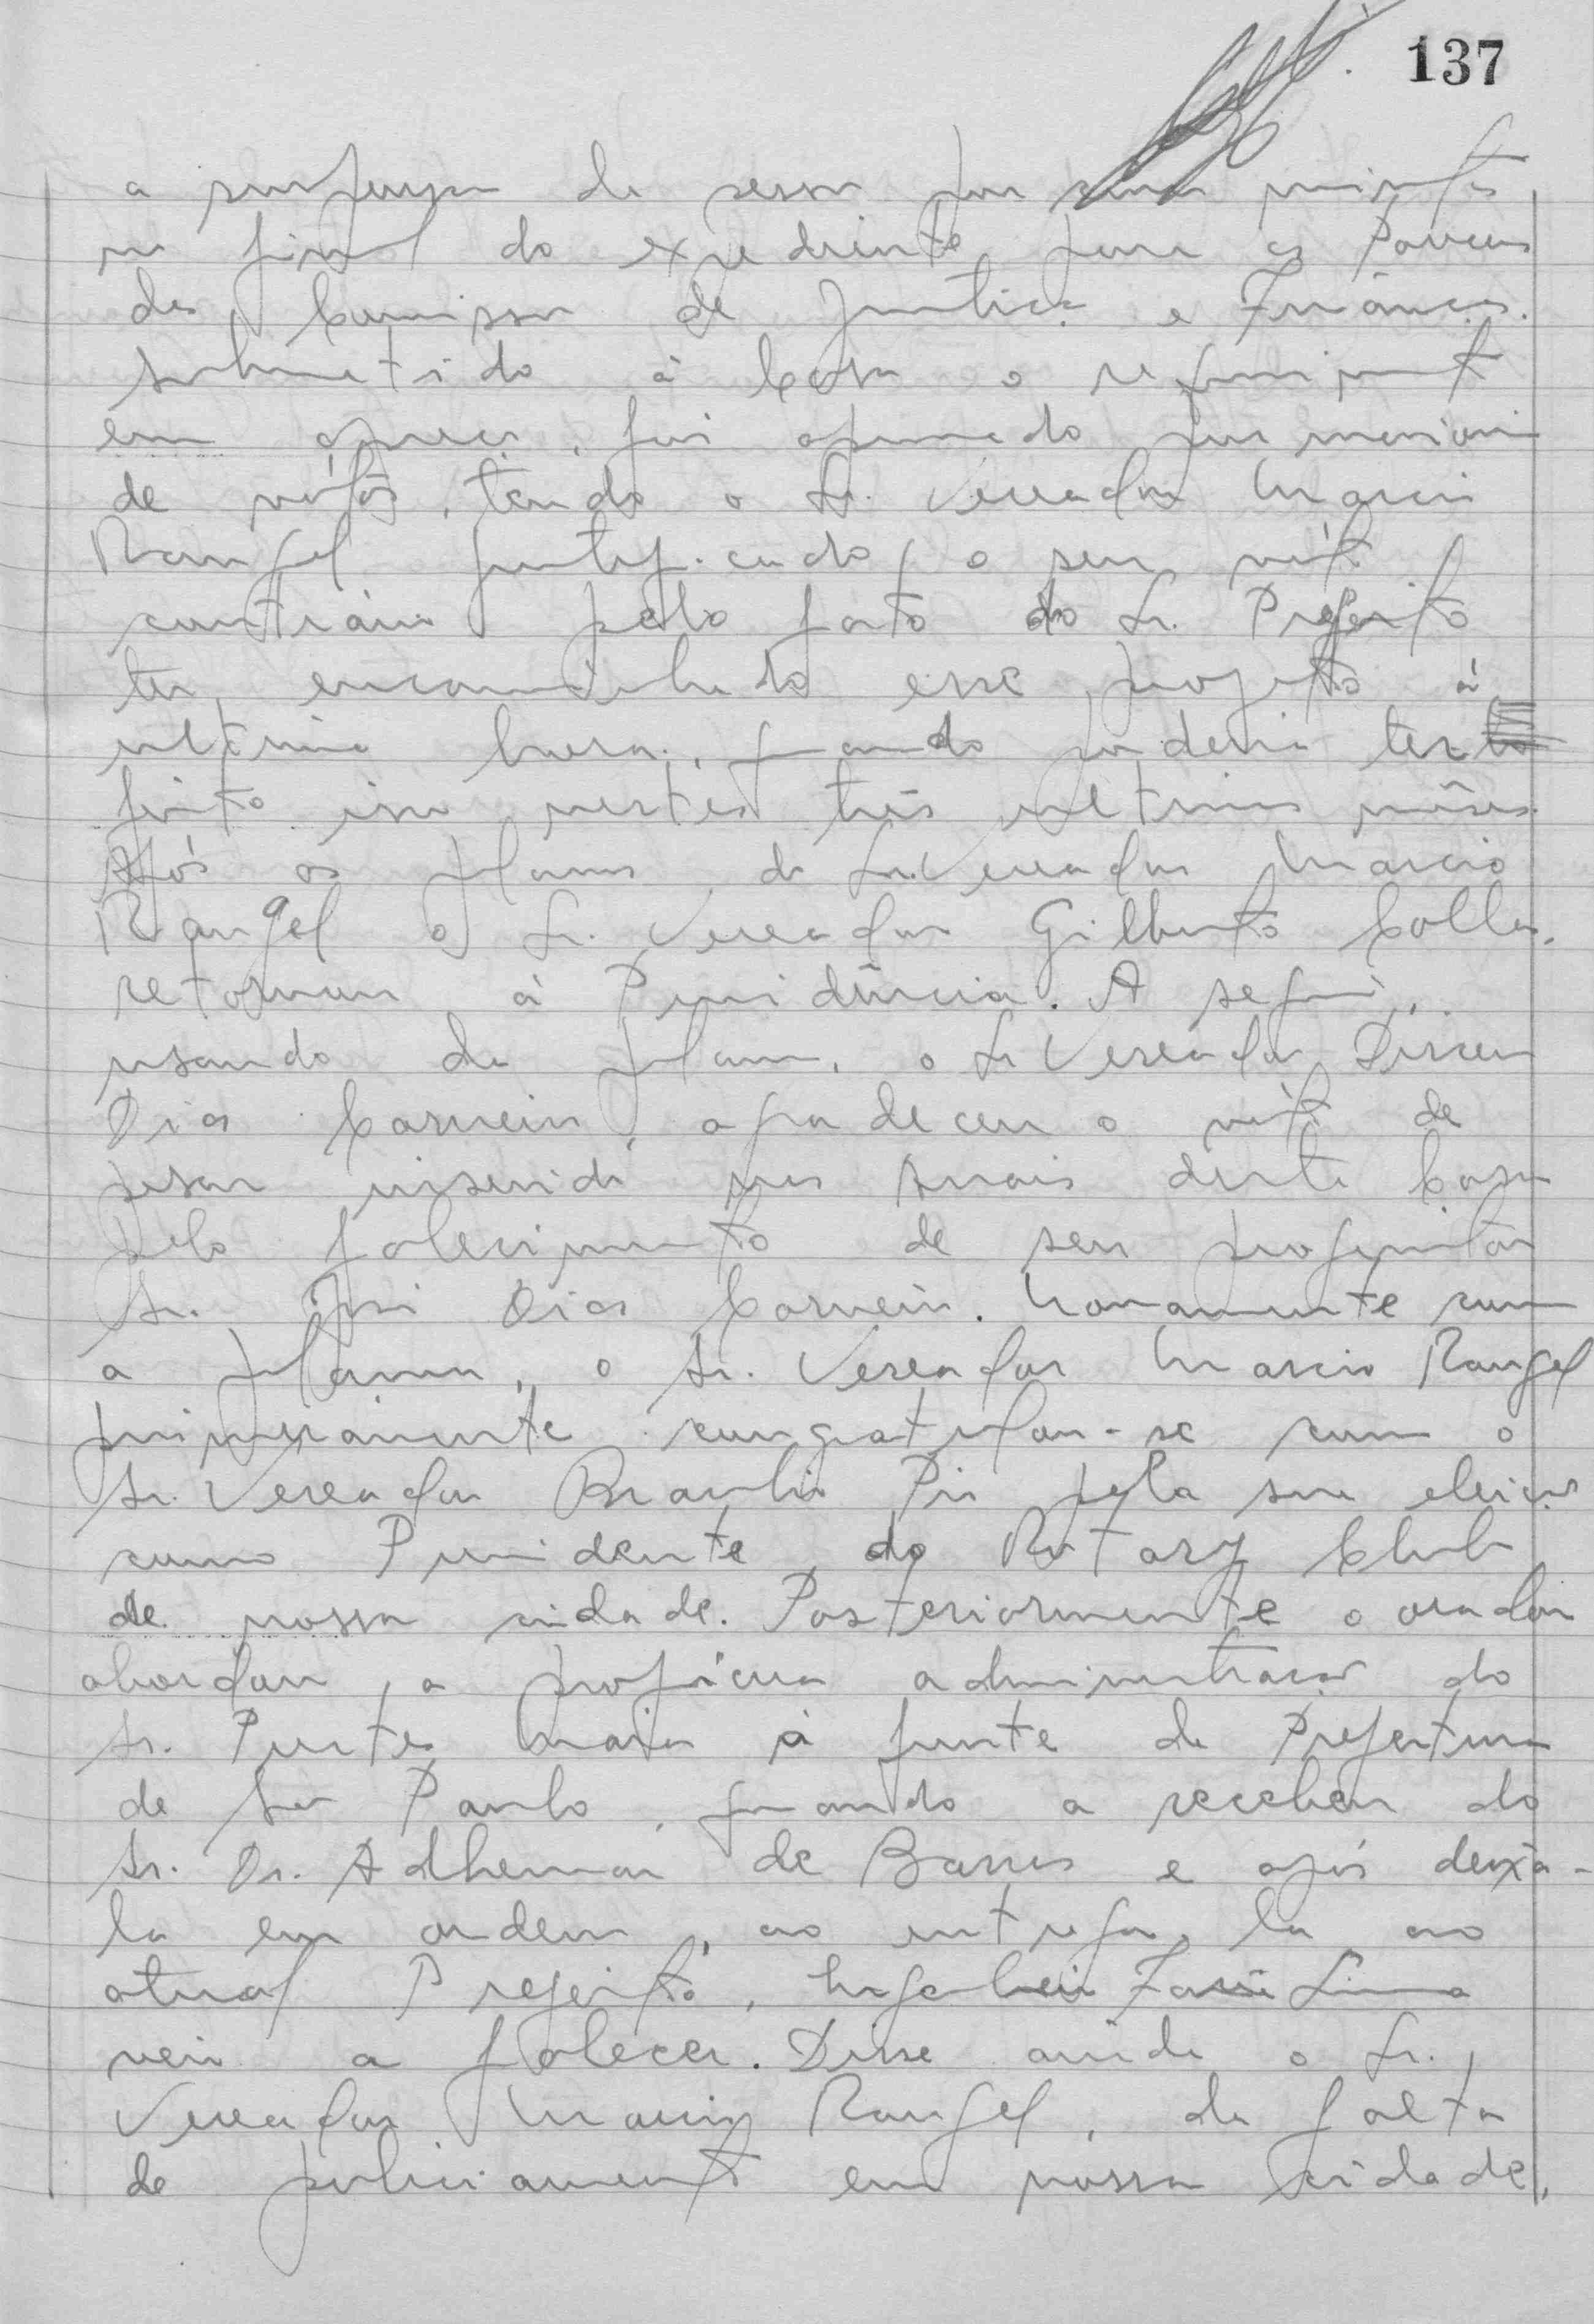 137
a suspensão da sessão por cinco minutos
no final do expediente para os Pareceres
das Comissões de Justiça e Finanças.
Submetido à Casa o requerimento
em apreço, foi aprovado por maioria
de votos, tendo o Sr. Vereador Marcio
Rangel justificado o seu voto
contrário pelo fato do Sr. Prefeito
ter encaminhado esse projeto à
ultima hora, quando poderia ter
feito isso nestes três ultimos mêses.
Após as palavras do Sr. Vereador Marcio
Rangel o Sr. Vereador Gilberto Colla,
retornou à Presidência. A seguir,
usando da palavra, o Sr Vereador Dirceu
Dias Carneiro, agradeceu o voto de
pesar inserido nos anais desta Casa
pelo falecimento de seu progenitor
Sr. José Dias Carneiro. Novamente com
a palavra, o Sr. Vereador Marcio Rangel
primeiramente congratulou-se com o
Sr. Vereador Braulio Pio pela sua eleição
como Presidente do Rotary Club
de nossa cidade. Posteriormente o orador
abordou a profícua administração do
Sr. Prestes Maia à frente da Prefeitura
de São Paulo, quando a recebeu do
Sr. Dr. Adhemar de Barros e após deixá-
la em ordem, ao entrega-la ao
atual Prefeito, Faria Lima
veio a falecer. Disse ainda o Sr.
Vereador Marcio Rangel, da falta
de policiamento em nossa cidade,